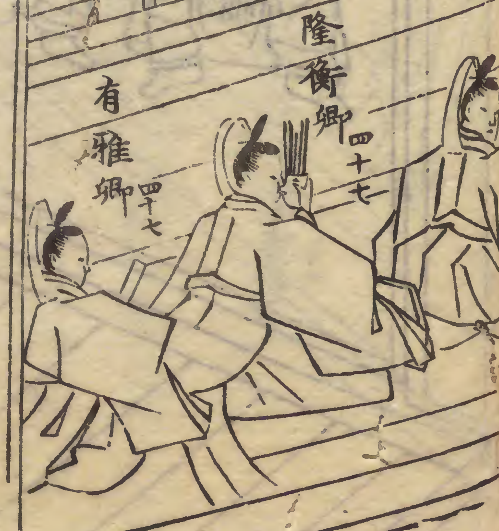 隆衡卿
四十七
有雅卿
四十七